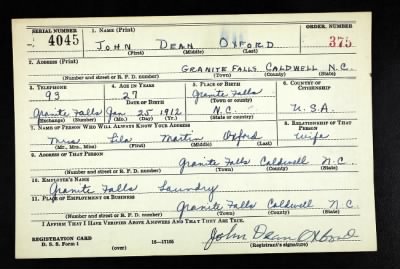 SERIAL NUMBER 1. NAME (Print) ORDER NUMBER
4045 JOHN DEAN OXFORD 375
(First) (Middle) (Last)
2. ADDRESS (Print)
GRANITE FALLS CALDWELL N.C.
(Number and street or R. F. D. number) (Town) (County) (State)
3. TELEPHONE 4. AGE IN YEARS 5. PLACE OF BIRTH 6. COUNTRY OF CITIZENSHIP
93 27 Granite Falls
DATE OF BIRTH (Town or county)
Granite Falls Jan 25 1912 N.C. U.S.A.
(Exchange) (Number) (Mo.) (Day) (Yr.) (State or country)
7. NAME OF PERSON WHO WILL ALWAYS KNOW YOUR ADDRESS 8. RELATIONSHIP OF THAT PERSON
Mrs Lila Martin Oxford Wife
(Mr., Mrs., Miss) (First) (Middle) (Last)
9. ADDRESS OF THAT PERSON
Granite Falls Caldwell N.C.
(Number and street or R. F. D. number) (Town) (County) (State)
10. EMPLOYER'S NAME
Granite Falls Laundry
11. PLACE OF EMPLOYMENT OR BUSINESS
Granite Falls Caldwell N.C.
(Number and street or R. F. D. number) (Town) (County) (State)
I AFFIRM THAT I HAVE VERIFIED ABOVE ANSWERS AND THAT THEY ARE TRUE.
REGISTRATION CARD John Dean Oxford
D. S. S. Form 1 (over) 16—17105 (Registrant's signature)